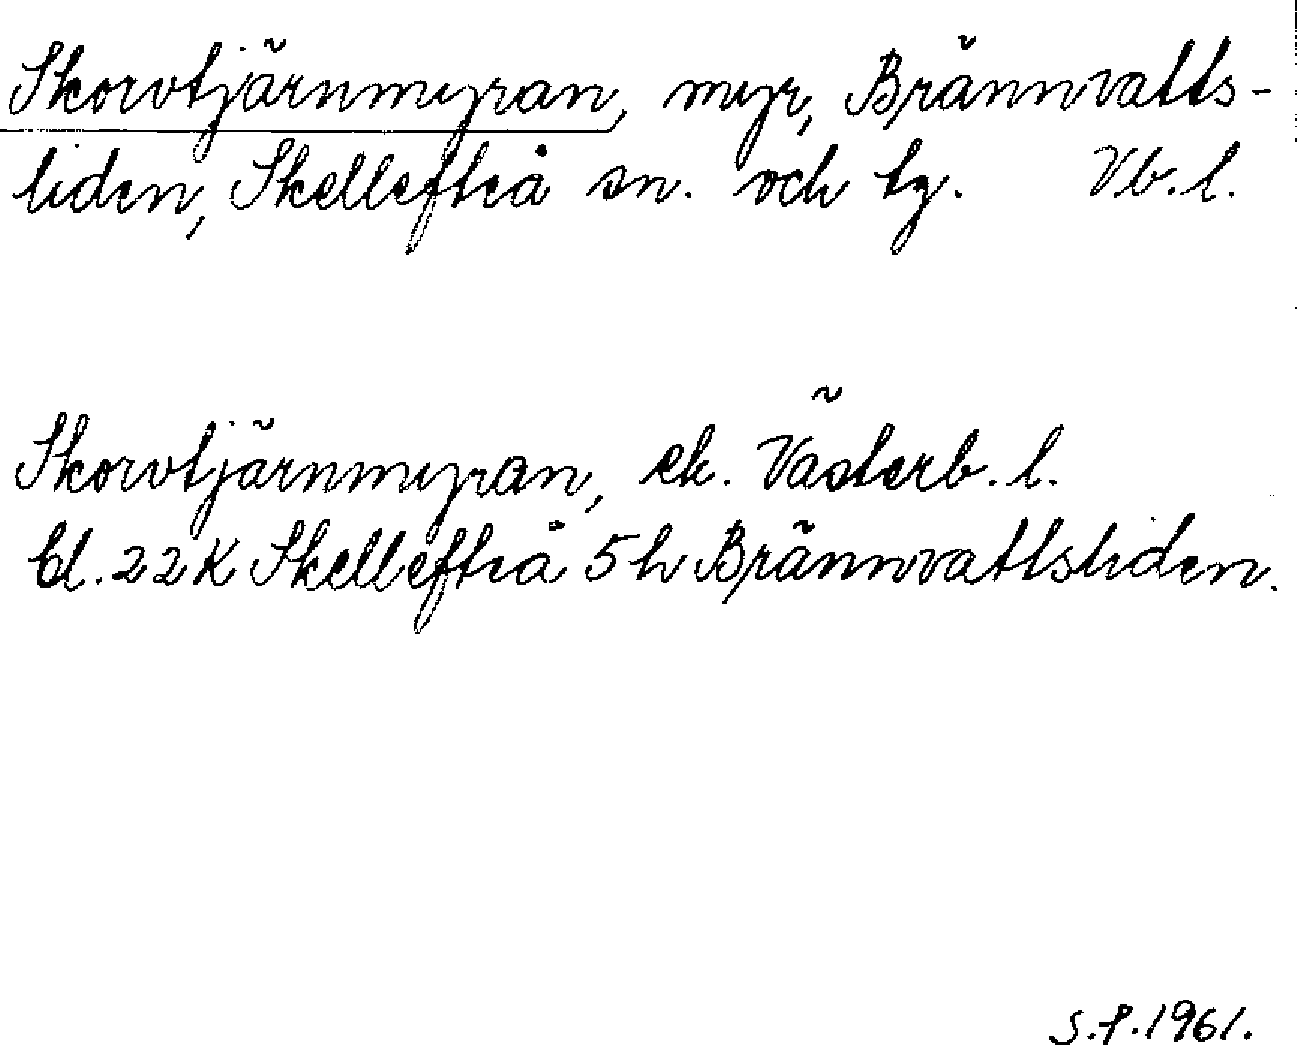 Skorvtjärnmyran, myr, Brännvatts-
liden, Skellefteå sn. och tg. Vb. l.
Skorvtjärnmyran, ek. Västerb. l.
bl. 22K Skellefteå 5h Brännvattsliden.
S.P. 1961.